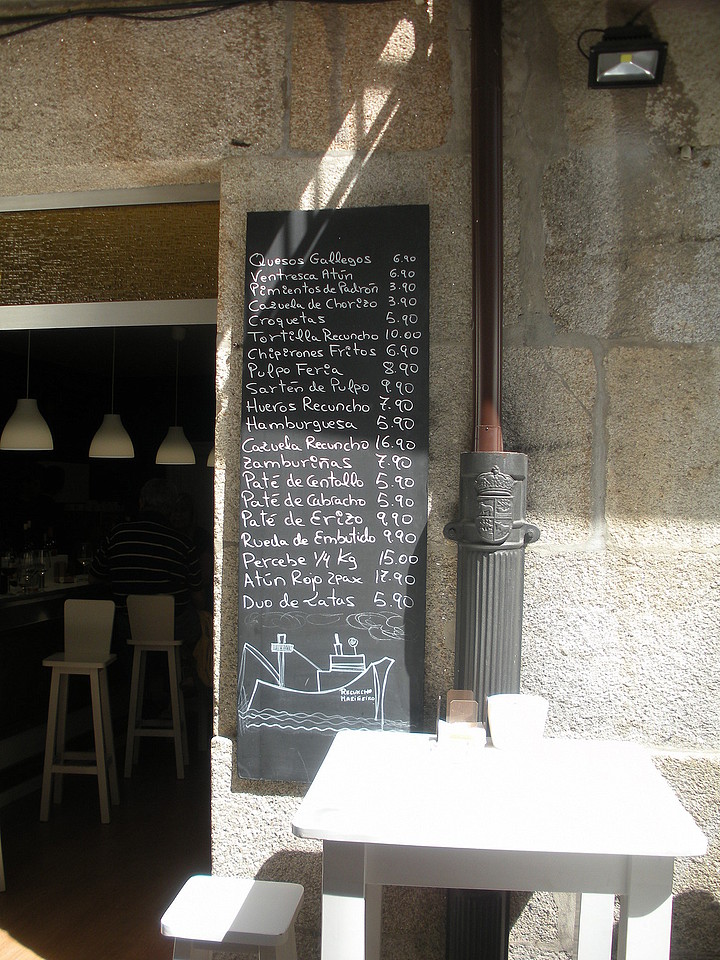 Quesos Gallegos 6.90
Ventresca Atún 6.90
Pimientos de Padrón 3.90
Cazuela de Chorizo 3.90
Croquetas 5.90
Tortilla Recuncho 10.00
Chipirones Fritos 6.90
Pulpo Feria 8.90
Sartén de Pulpo 9.90
Huevos Recuncho 7.90
Hamburguesa 5.90
Cazuela Recuncho 16.90
Zamburiñas 7.90
Paté de Centollo 5.90
Paté de Cabracho 5.90
Paté de Erizo 9,90
Rueda de Embutido 9.90
Percebe 1/4 Kg 15.00
Atún Rojo 2pax 17.90
Duo de Latas 5.90
RECUNCHO
MARIÑEIRO